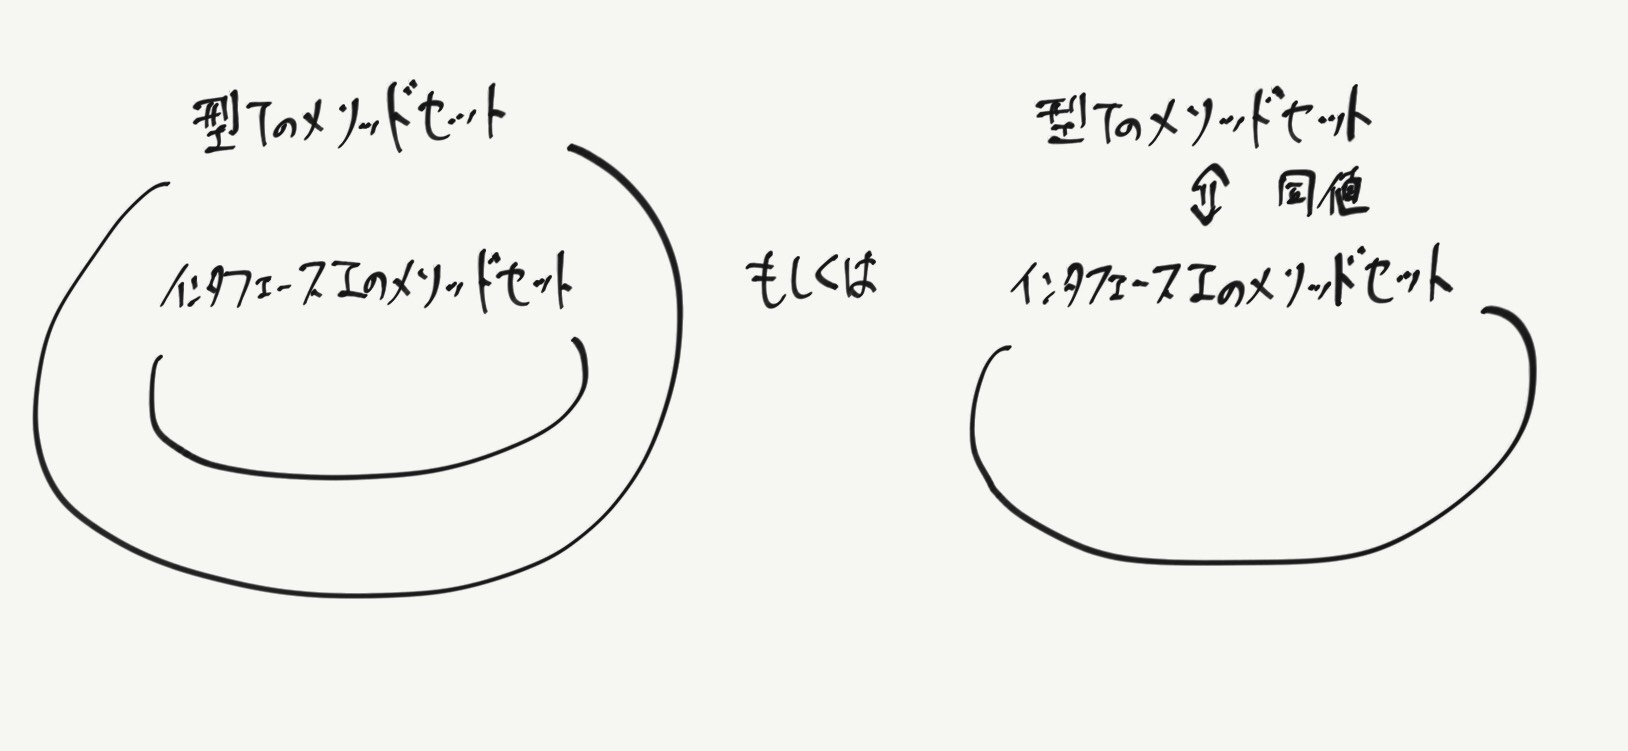 型Tのメソッドセット
インタフェースIのメソッドセット
もしくは
型Tのメソッドセット
⇕ 同値
インタフェースIのメソッドセット